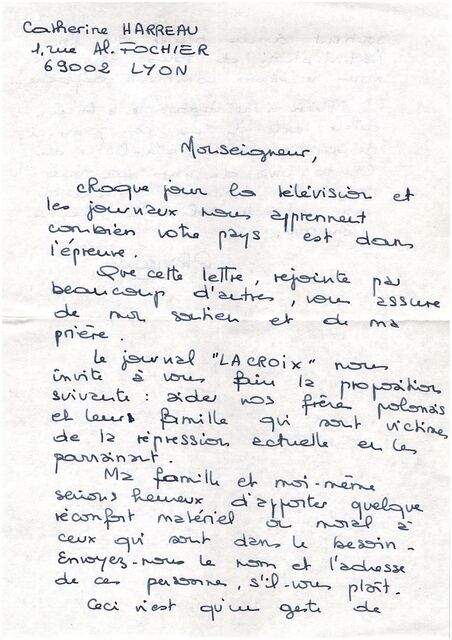 Catherine HARREAU
1, rue Al. FOCHIER
69002 LYON
Monseigneur,
chaque jour la télévision et
les journaux nous apprennent
combien votre pays est dans
l'épreuve.
Que cette lettre, rejointe par
beaucoup d'autres, vous assure
de mon soutien et de ma
prière.
Le journal "LA CROIX" nous
invite à vous faire la proposition
suivante : aider nos frères polonais
et leurs famille qui sont victimes
de la répression actuelle en les
parrainant.
Ma famille et moi-même
serions heureux d'apporter quelque
réconfort matériel ou moral à
ceux qui sont dans le besoin.
Envoyez-nous le nom et l'adresse
de ces personnes, s'il-vous plaît.
Ceci n'est qu'un geste de